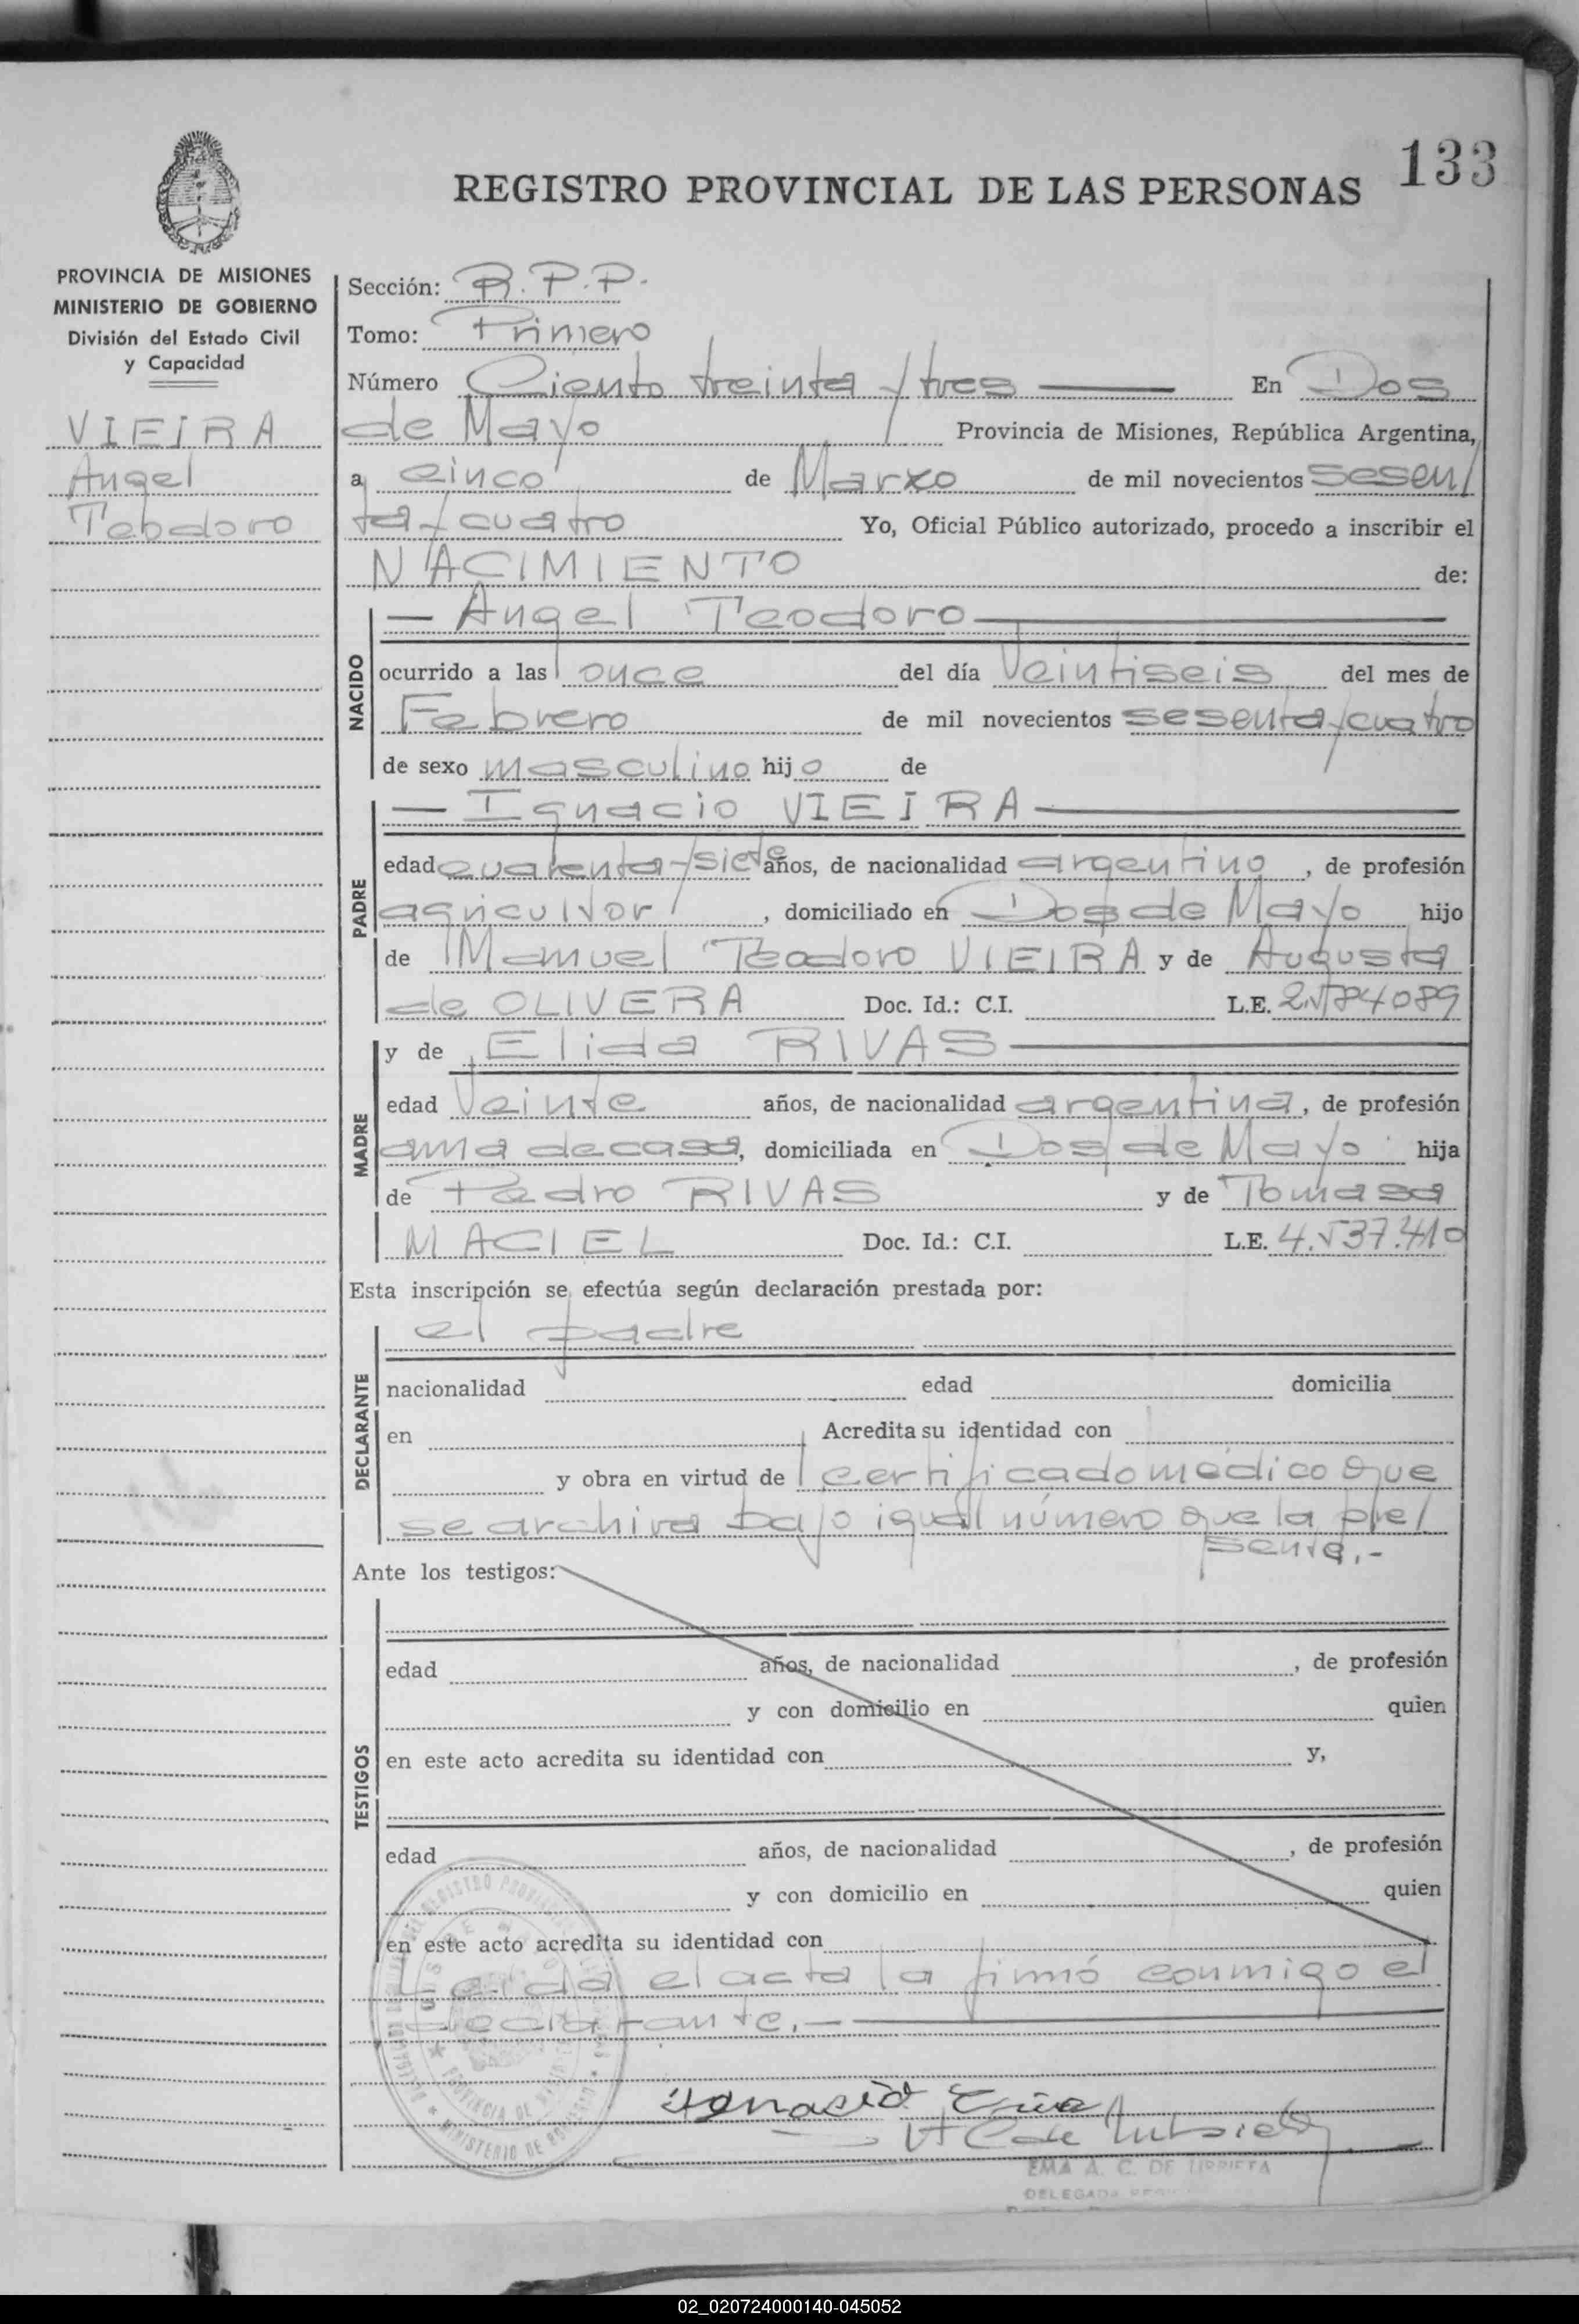 133
REGISTRO PROVINCIAL DE LAS PERSONAS
PROVINCIA DE MISIONES
MINISTERIO DE GOBIERNO
División del Estado Civil
y Capacidad
VIEIRA
Angel
Teodoro
Sección: R.P.P.
Tomo: Primero
Número Ciento treinta y tres En Dos
de Mayo Provincia de Misiones, República Argentina,
a cinco de Marzo de mil novecientos sesen/
ta y cuatro Yo, Oficial Público autorizado, procedo a inscribir el
NACIMIENTO de:
— Angel Teodoro —
NACIDO
ocurrido a las once del día veintiseis del mes de
Febrero de mil novecientos sesenta y cuatro
de sexo masculino hijo de
— Ignacio VIEIRA —
PADRE
edad cuarenta y siete años, de nacionalidad argentino, de profesión
agricultor, domiciliado en Dos de Mayo hijo
de Manuel Teodoro VIEIRA y de Augusta
de OLIVERA Doc. Id.: C.I. L.E. 2.584089
y de Elida RIVAS —
MADRE
edad Veinte años, de nacionalidad argentina, de profesión
ama de casa, domiciliada en Dos de Mayo hija
de Pedro RIVAS y de Tomasa
MACIEL Doc. Id.: C.I. L.E. 4.537.410
Esta inscripción se efectúa según declaración prestada por:
el padre
DECLARANTE
nacionalidad edad domicilia
en Acredita su identidad con
y obra en virtud de certificado médico que
se archiva bajo igual número que la pre/
sente.-
Ante los testigos:
TESTIGOS
edad años, de nacionalidad , de profesión
y con domicilio en quien
en este acto acredita su identidad con y,
edad años, de nacionalidad , de profesión
y con domicilio en quien
en este acto acredita su identidad con
Leída el acta la firmó conmigo el
declarante.-
EMA A. C. DE URRIETA
DELEGADA
02_020724000140-045052